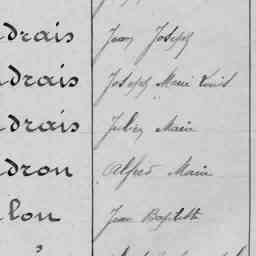 drais Jean Joseph
drais Joseph Marie Louis
drais Julien Marie
dron Alfred Marie
lon Jean Baptiste